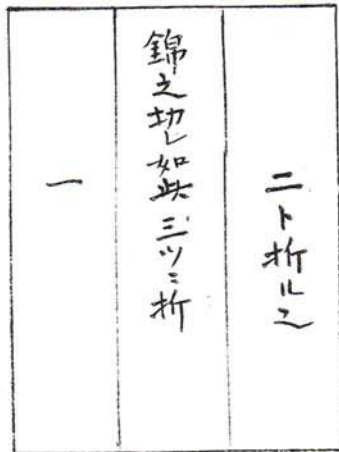 二ト折ル之
錦之切レ如此三ツニ折
一